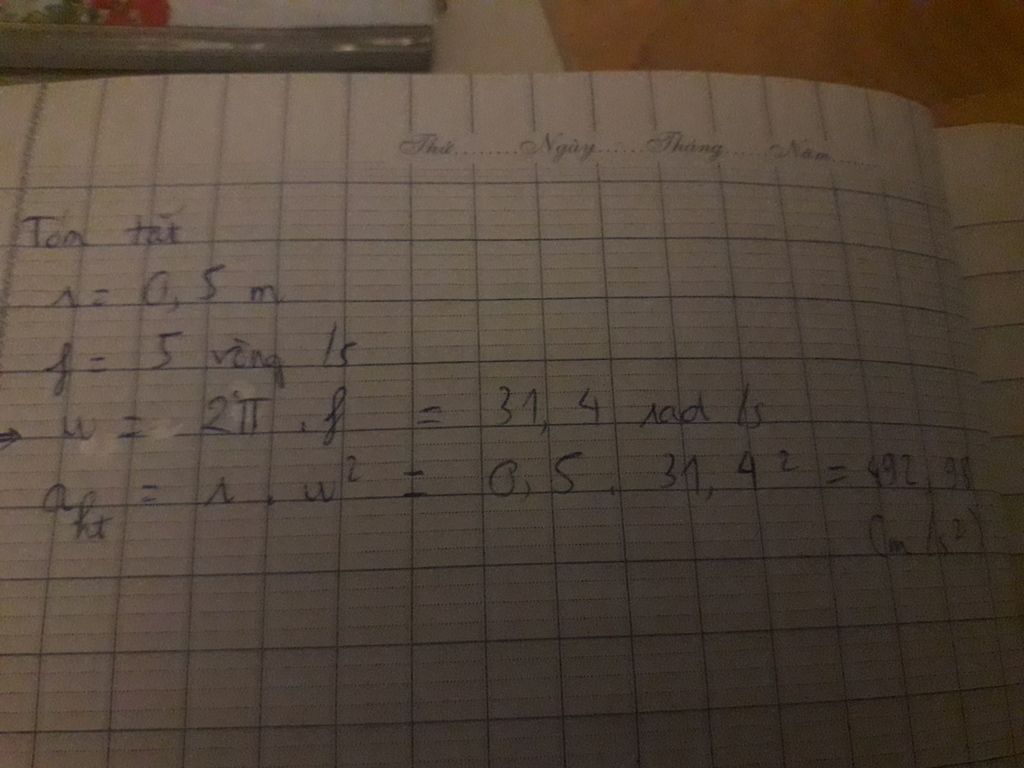 Thứ........Ngày......Tháng......Năm......
Tóm tắt
r = 0,5 m
f = 5 vòng /s
→ ω = 2π . f = 31,4 rad /s
aht = r . ω² = 0,5 . 31,4² = 492,98
(m /s²)